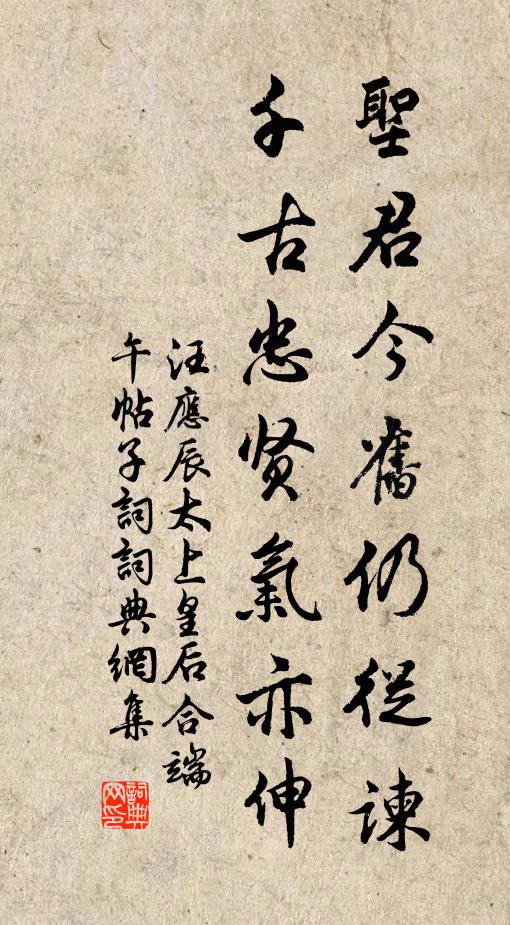 聖君今舊仍從諫
千古忠贤氣亦伸
汪應辰太上皇后合端
午帖子詞詞典網集
詞典网印